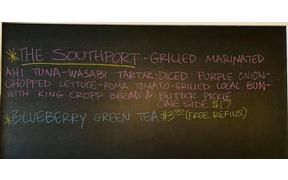 *THE SOUTHPORT - GRILLED MARINATED
AHI TUNA-WASABI TARTAR-DICED PURPLE ONION-
CHOPPED LETTUCE-ROMA TOMATO-GRILLED LOCAL BUN-
WITH KING CROPP BREAD & BUTTER PICKLE
ONE SIDE $17
*BLUEBERRY GREEN TEA $3.50 (FREE REFILLS)